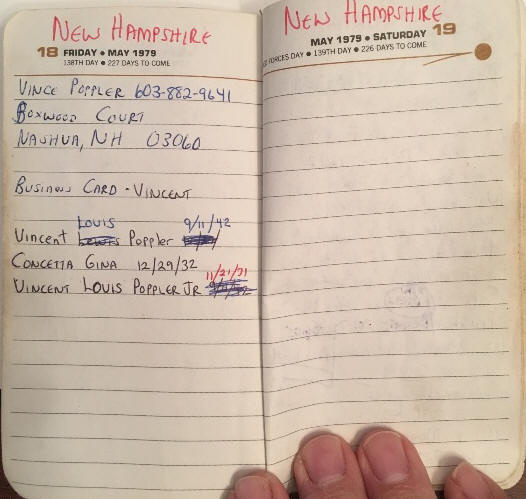 NEW HAMPSHIRE
18 FRIDAY • MAY 1979
138TH DAY • 227 DAYS TO COME
VINCE POPPLER 603-882-9641
BOXWOOD COURT
NASHUA, NH 03060
BUSINESS CARD - VINCENT
LOUIS 9/11/42
Vincent Lewis Poppler
CONCETTA GINA 12/29/32
11/21/71
VINCENT LOUIS POPPLER JR
NEW HAMPSHIRE
MAY 1979 • SATURDAY 19
FORCES DAY • 139TH DAY • 226 DAYS TO COME